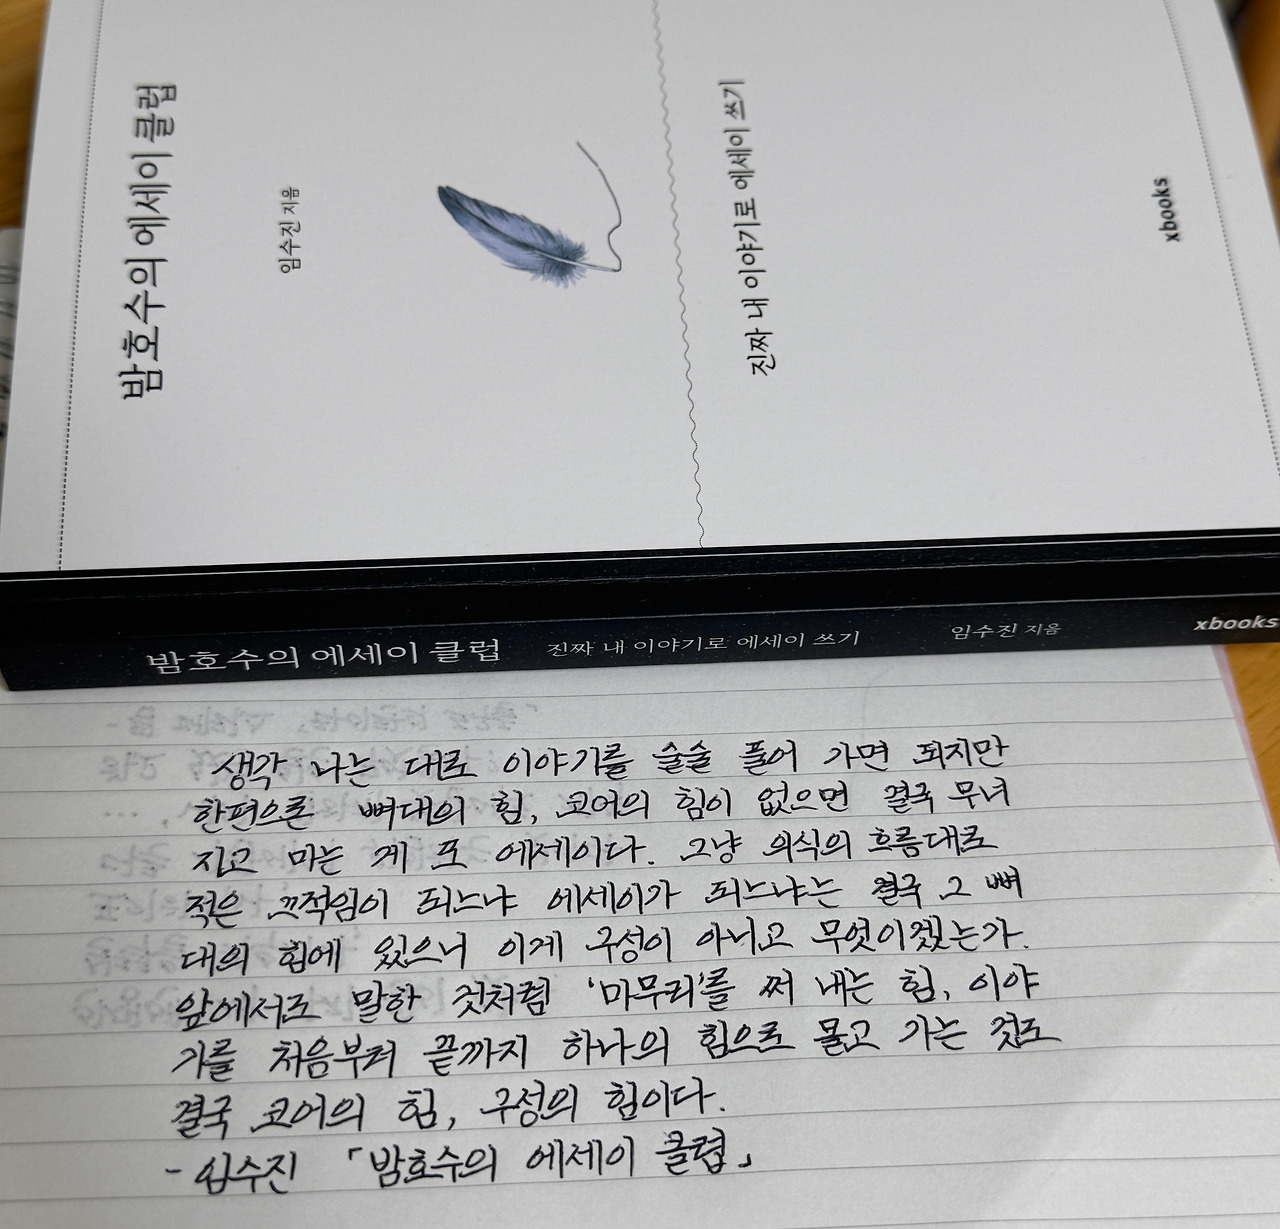 밤호수의 에세이 클럽
임수진 지음
진짜 내 이야기로 에세이 쓰기
xbooks
밤호수의 에세이 클럽 진짜 내 이야기로 에세이 쓰기 임수진 지음 xbooks
생각 나는 대로 이야기를 술술 풀어 가면 되지만
한편으론 뼈대의 힘, 코어의 힘이 없으면 결국 무너
지고 마는 게 또 에세이다. 그냥 의식의 흐름대로
적은 끄적임이 되느냐 에세이가 되느냐는 결국 그 뼈
대의 힘에 있으니 이게 구성이 아니고 무엇이겠는가.
앞에서도 말한 것처럼 '마무리'를 써 내는 힘, 이야
기를 처음부터 끝까지 하나의 힘으로 몰고 가는 것도
결국 코어의 힘, 구성의 힘이다.
- 임수진 「밤호수의 에세이 클럽」